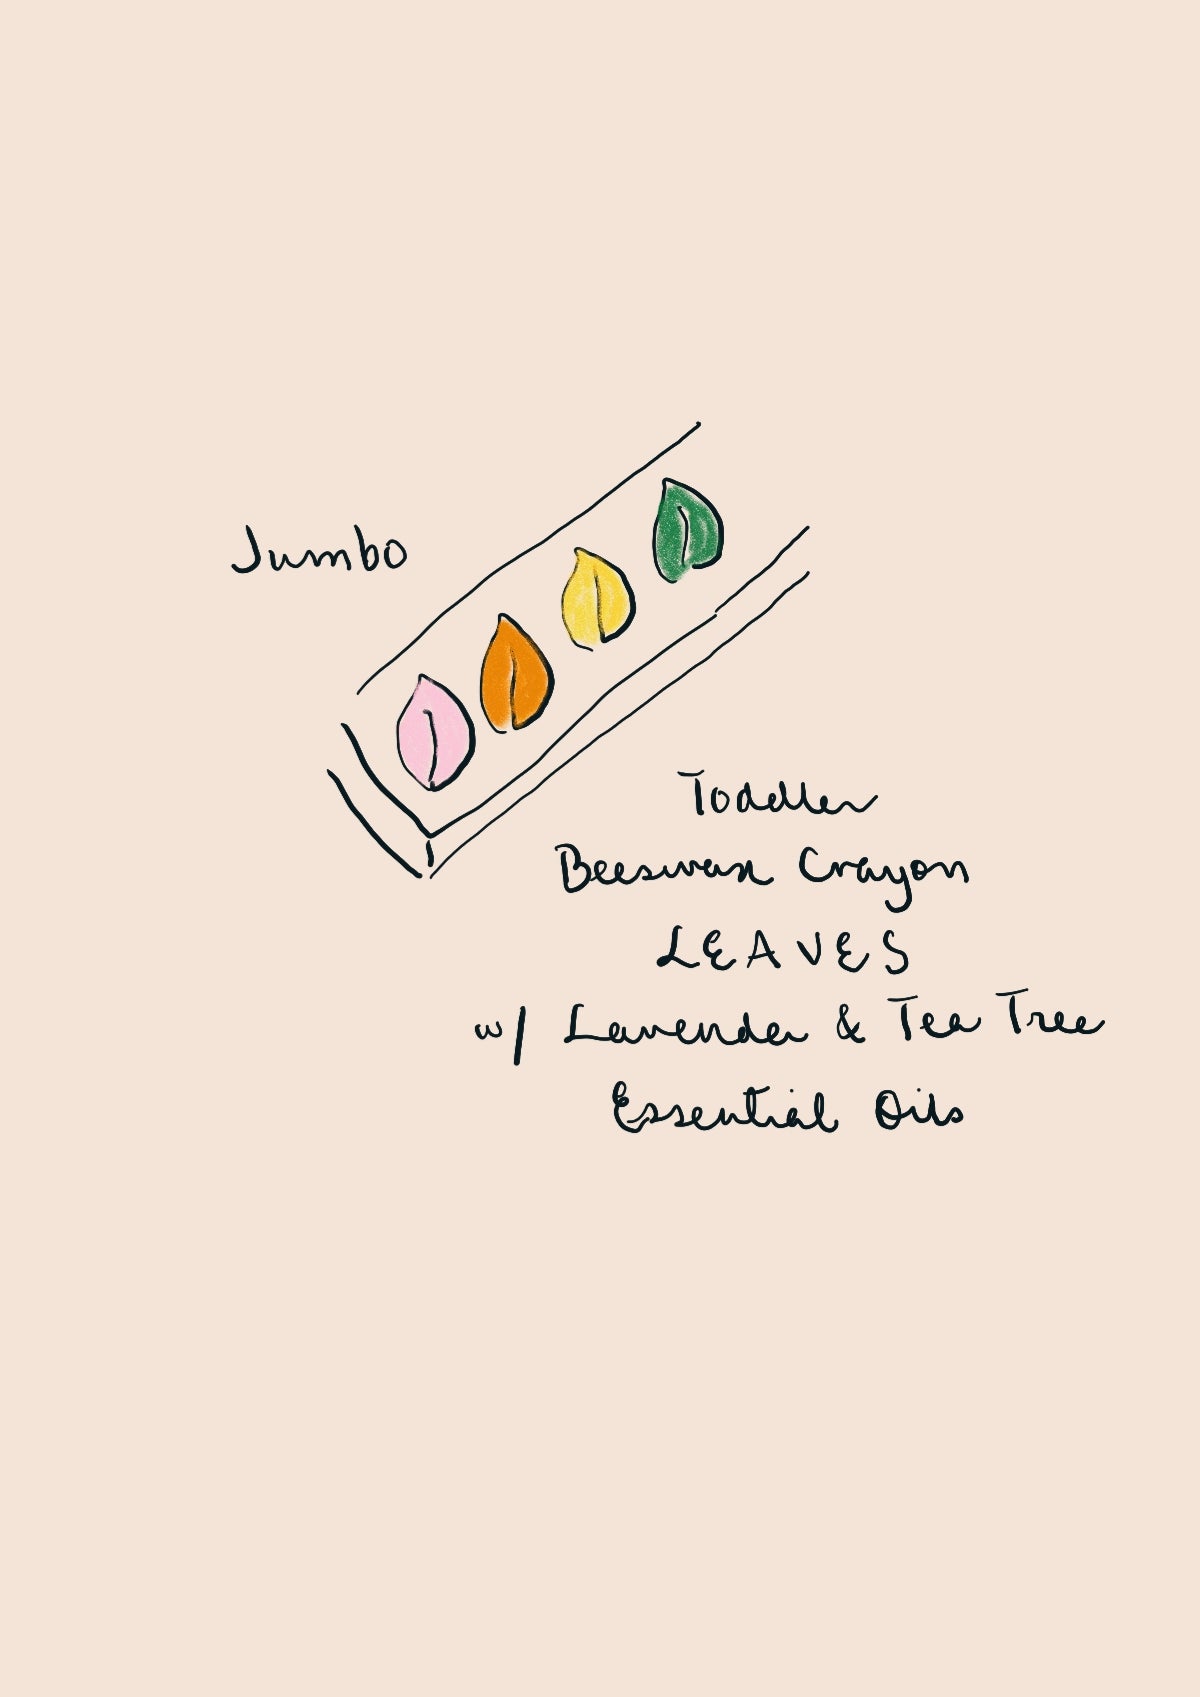 Jumbo
Toddler
Beeswax Crayon
LEAVES
w/ Lavender & Tea Tree
Essential Oils